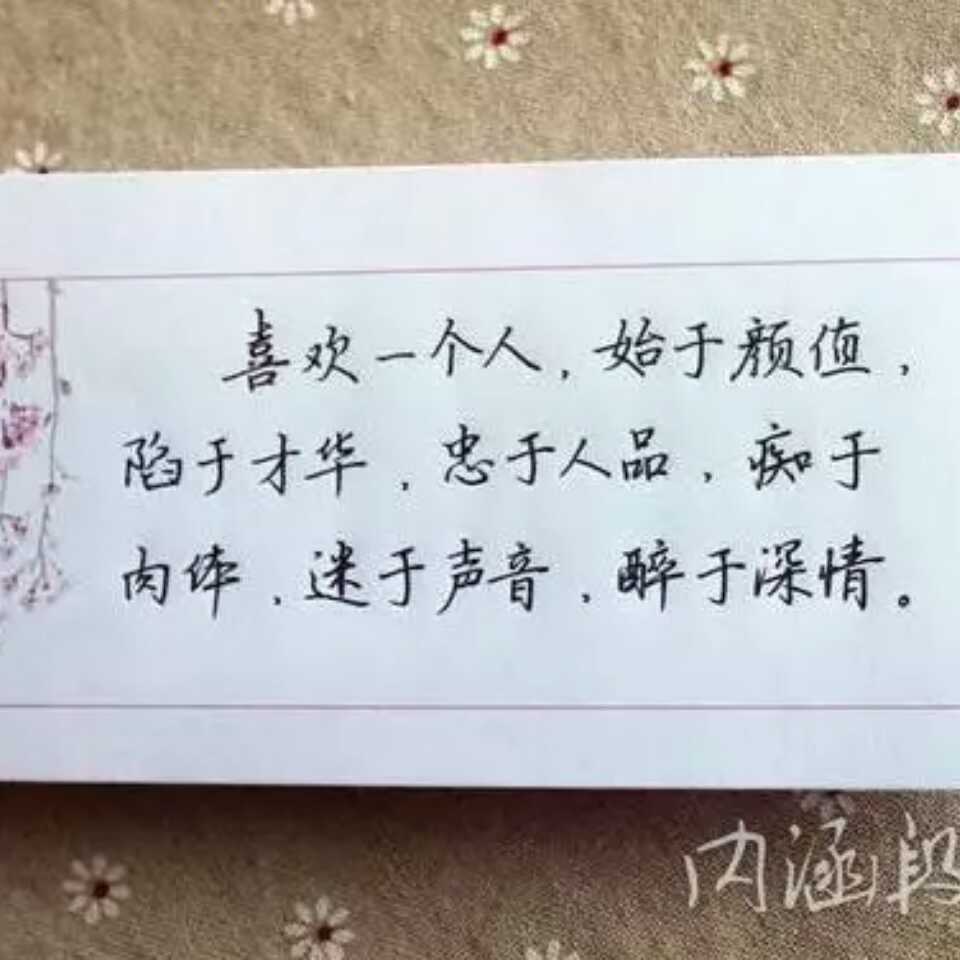 喜欢一个人，始于颜值，
陷于才华，忠于人品，痴于
肉体，迷于声音，醉于深情。
内涵段